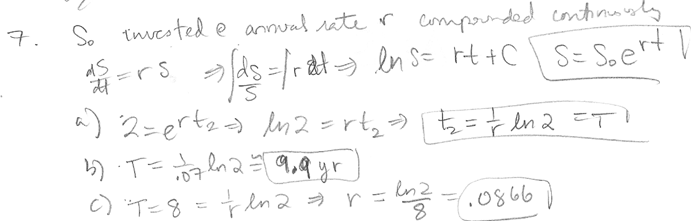 7. S₀ invested @ annual rate r compounded continuously
dS/dt = r S ⇒ ∫dS/S = ∫r dt ⇒ ln S = rt + C S = S₀e^rt
a) 2 = e^rt₂ ⇒ ln 2 = rt₂ ⇒ t₂ = 1/r ln 2 = T
b) T = 1/.07 ln 2 ≅ 9.9 yr
c) T = 8 = 1/r ln 2 ⇒ r = ln 2/8 = .0866